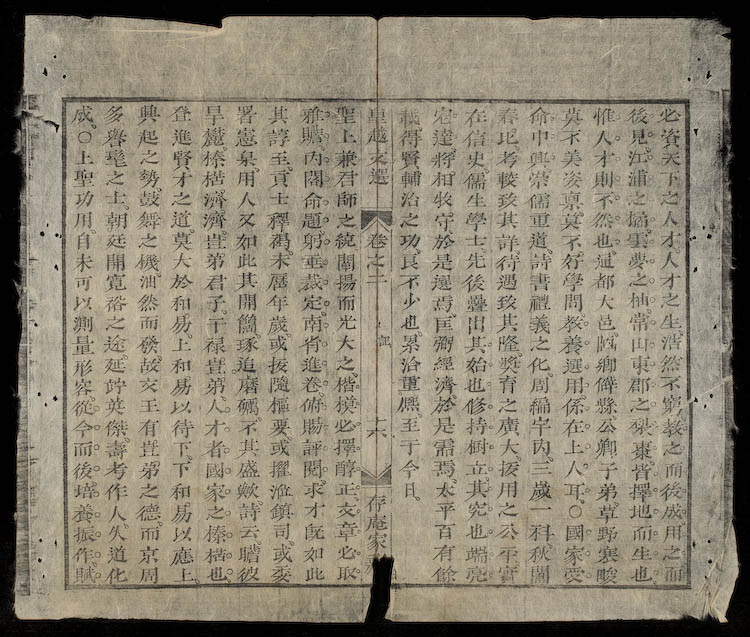 必資天下之人才人才之生浩然不窮教之而後成用之而
後見江浦之橘雲夢之柚常山東郡之梨棗皆擇地而生也
惟人才則不然也通都大邑僻縣公卿子弟草野寒畯
莫不美姿稟莫不好學問教養選用係在上人耳〇國家受
命中興崇儒重道詩書禮義之化周編宇內三歲一科秋闈
春比考較致其詳待遇致其隆獎育之廣大拔用之公平實
在信史儒生學士先後疊出其始也修持樹立其究也端亮
宏達將相牧守於是選焉匡弼經濟於是需焉太平百有餘
載得賢輔治之功良不少也累洽重熙至于今日
皇越文選 卷之二 記 十六 存庵家
聖上兼君師之統闡揚而光大之楷模必擇醇正文章必取
雅贍內閣命題躬垂裁定南省進卷俯賜評閱求才旣如此
其諄至貢士釋褐未歷年歲或拔隨樞要或擢涖鎮司或委
署憲臬用人又如此其開雋琢追磨礪不其盛歟詩云瞻彼
旱麓榛楛濟濟豈弟君子干祿豈弟人才者國家之榛楛也
登進賢才之道莫大於和易上和易以待下下和易以應上
興起之勢鼓舞之機油然而發故文王有豈弟之德而京周
多譽髦之士朝廷開寬裕之途延竚英傑壽考作人久道化
成〇上聖功用自未可以測量形容從今而後培養振作賦